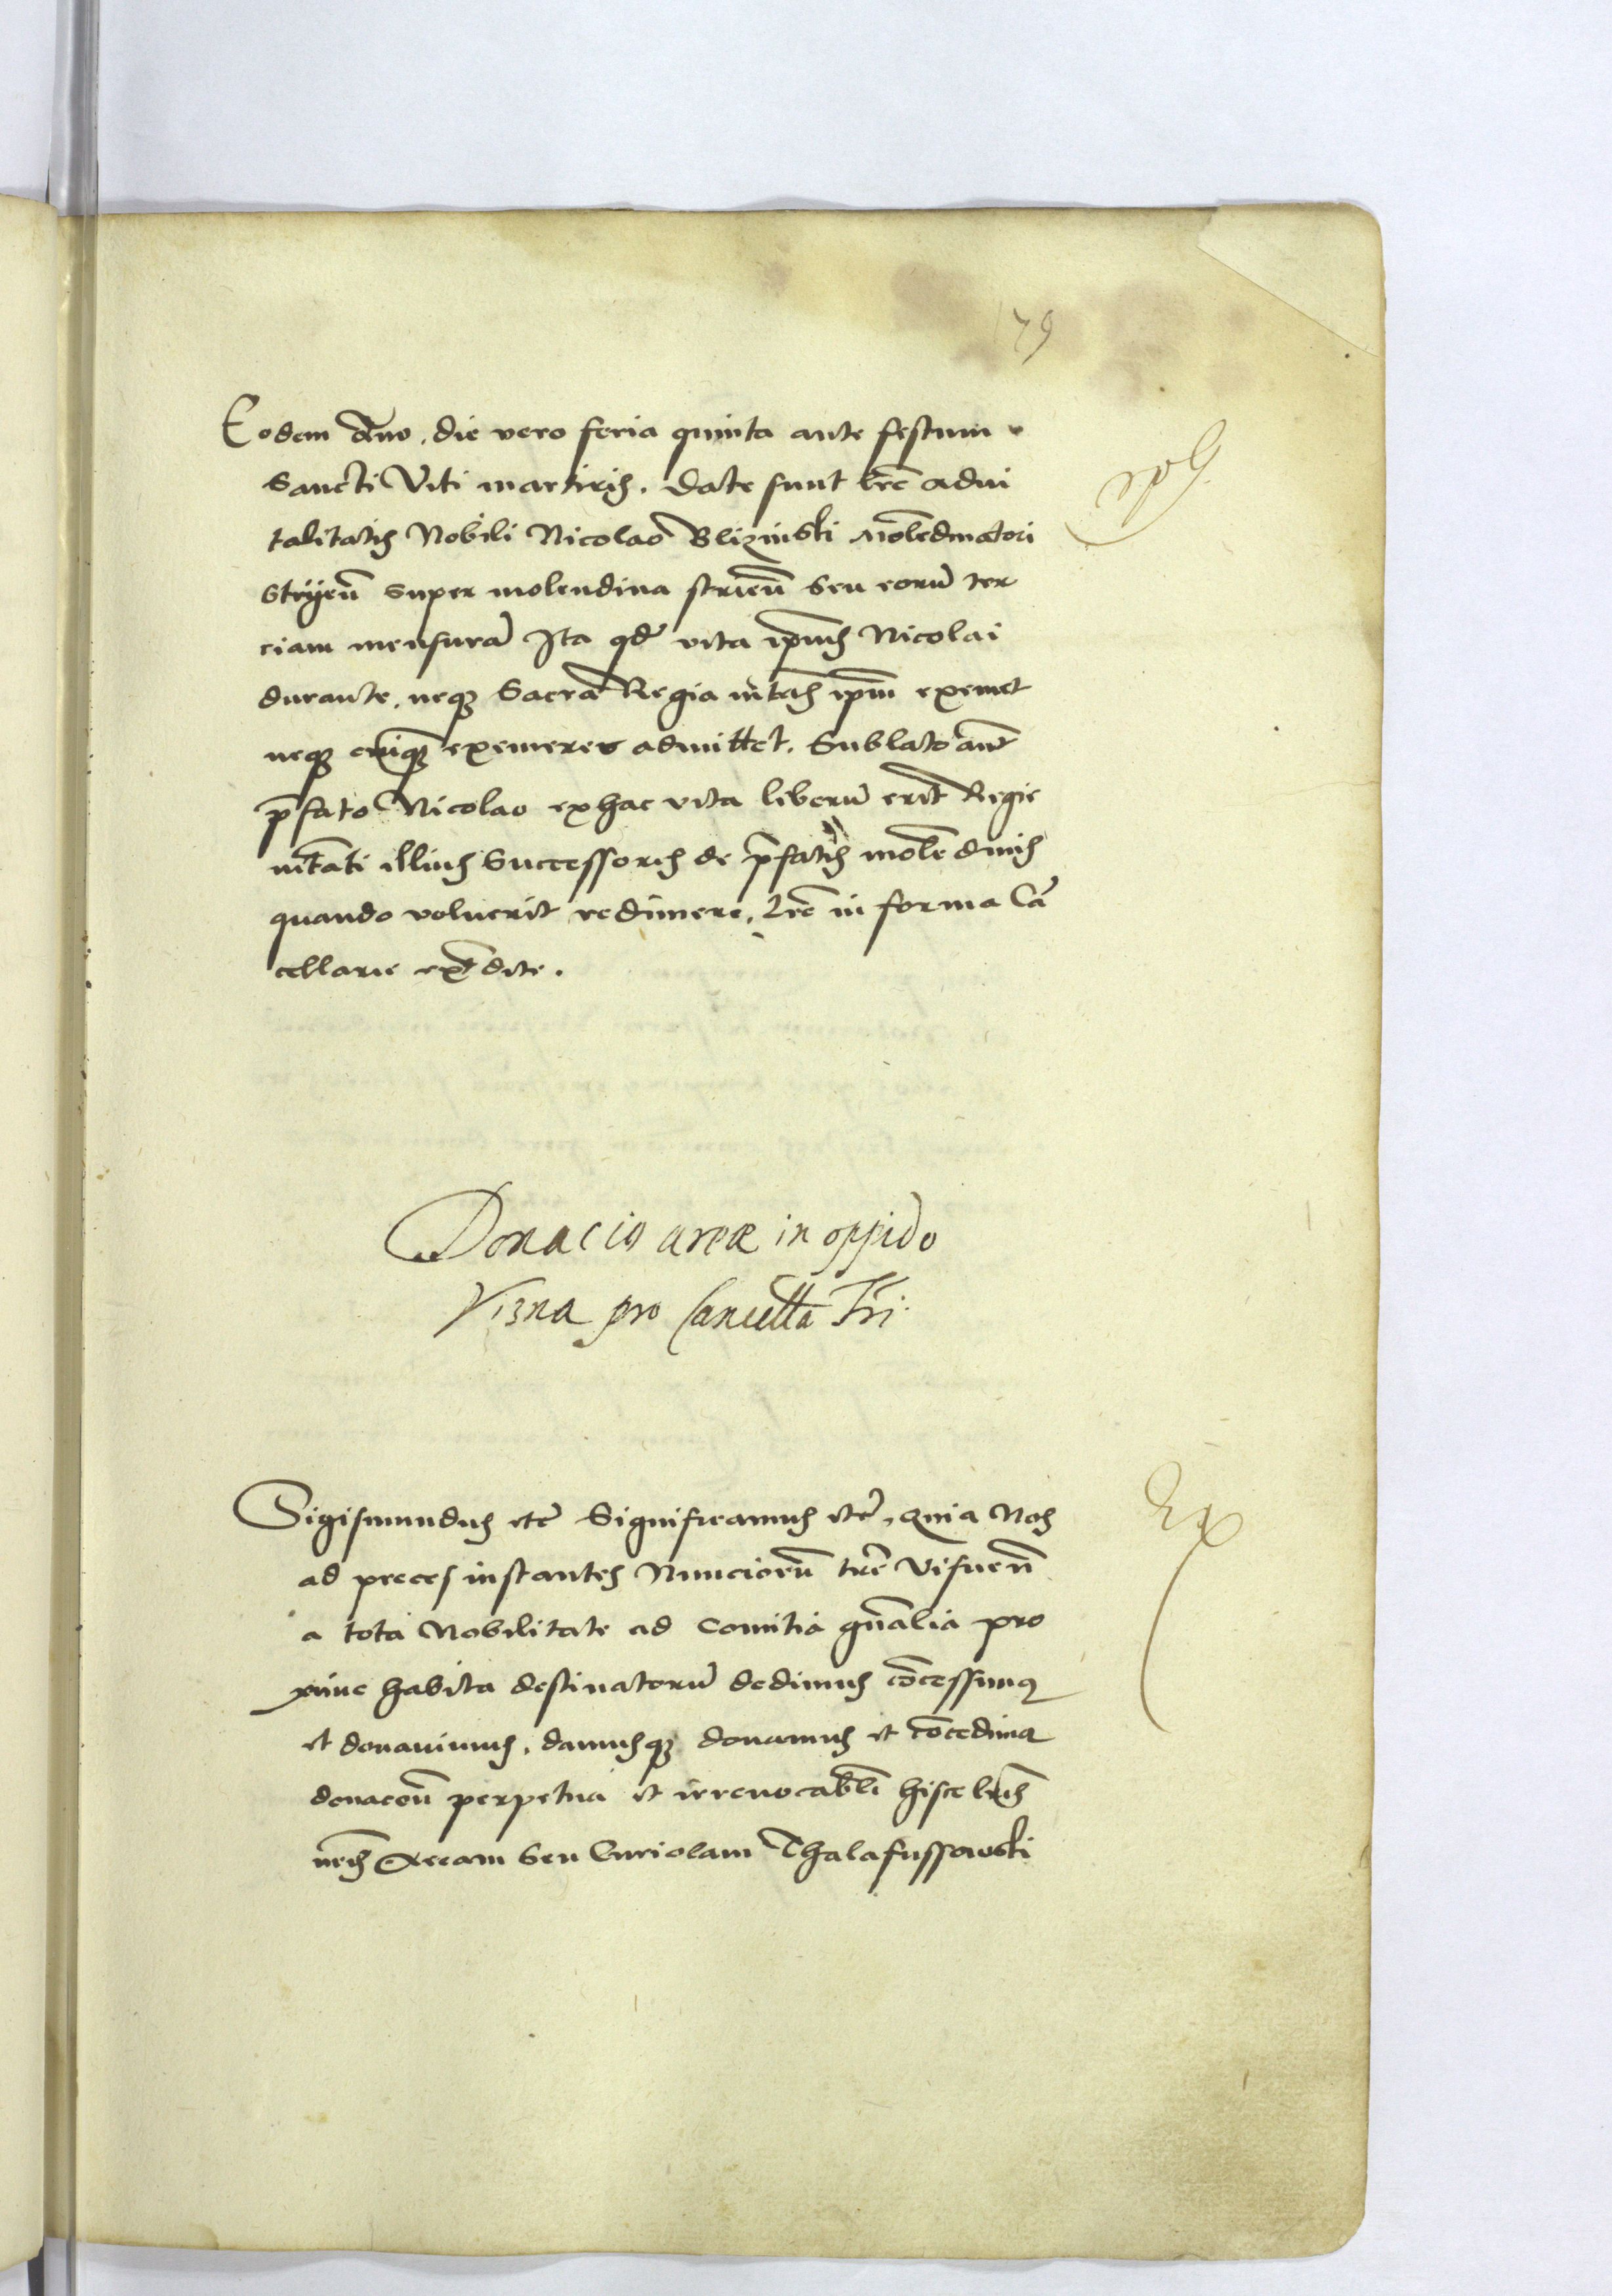 179
Eodem Anno, die vero feria quinta ante festum
Sancti Viti martiris. Date sunt lre͞ advi
talitatis Nobili Nicolao Blizinski Mole͞dinatori
Stryen͞ super molendina strien͞ seu eoru͞ ter
ciam mensura͞ Ita qd͞ vita ip͞ius Nicolai
durante, neq₃ Sacra Regia mtas͞ ip͞m eximet
neq₃ cuiq₃ eximere admittet. Sublato aut͞
p͞fato Nicolao ex hac vita liberu͞ erit Regie
mtati͞ illius Successoris de p͞fatis mole͞dinis
quando voluerit redimere, Lre͞ in forma Ca͞
cellarie exp͞dite.
Donacio areæ in oppido
Vizna pro Cancella Tri͞.
Sigismundus etc͞ Significamus etc͞, Quia Nos
ad preces instantes Nuncioru͞ tre͞ Visnen͞
a tota Nobilitate ad Comitia gn͞alia pro
xime habita destinatoru͞ dedimus co͞cessimus
et donavimus, damusq₃ donamus et co͞cedimus
donaco͞e perpetua et irrevocabli͞ hisce lris͞
nris͞ Aream seu Curiolam Thalafussowski
Ex